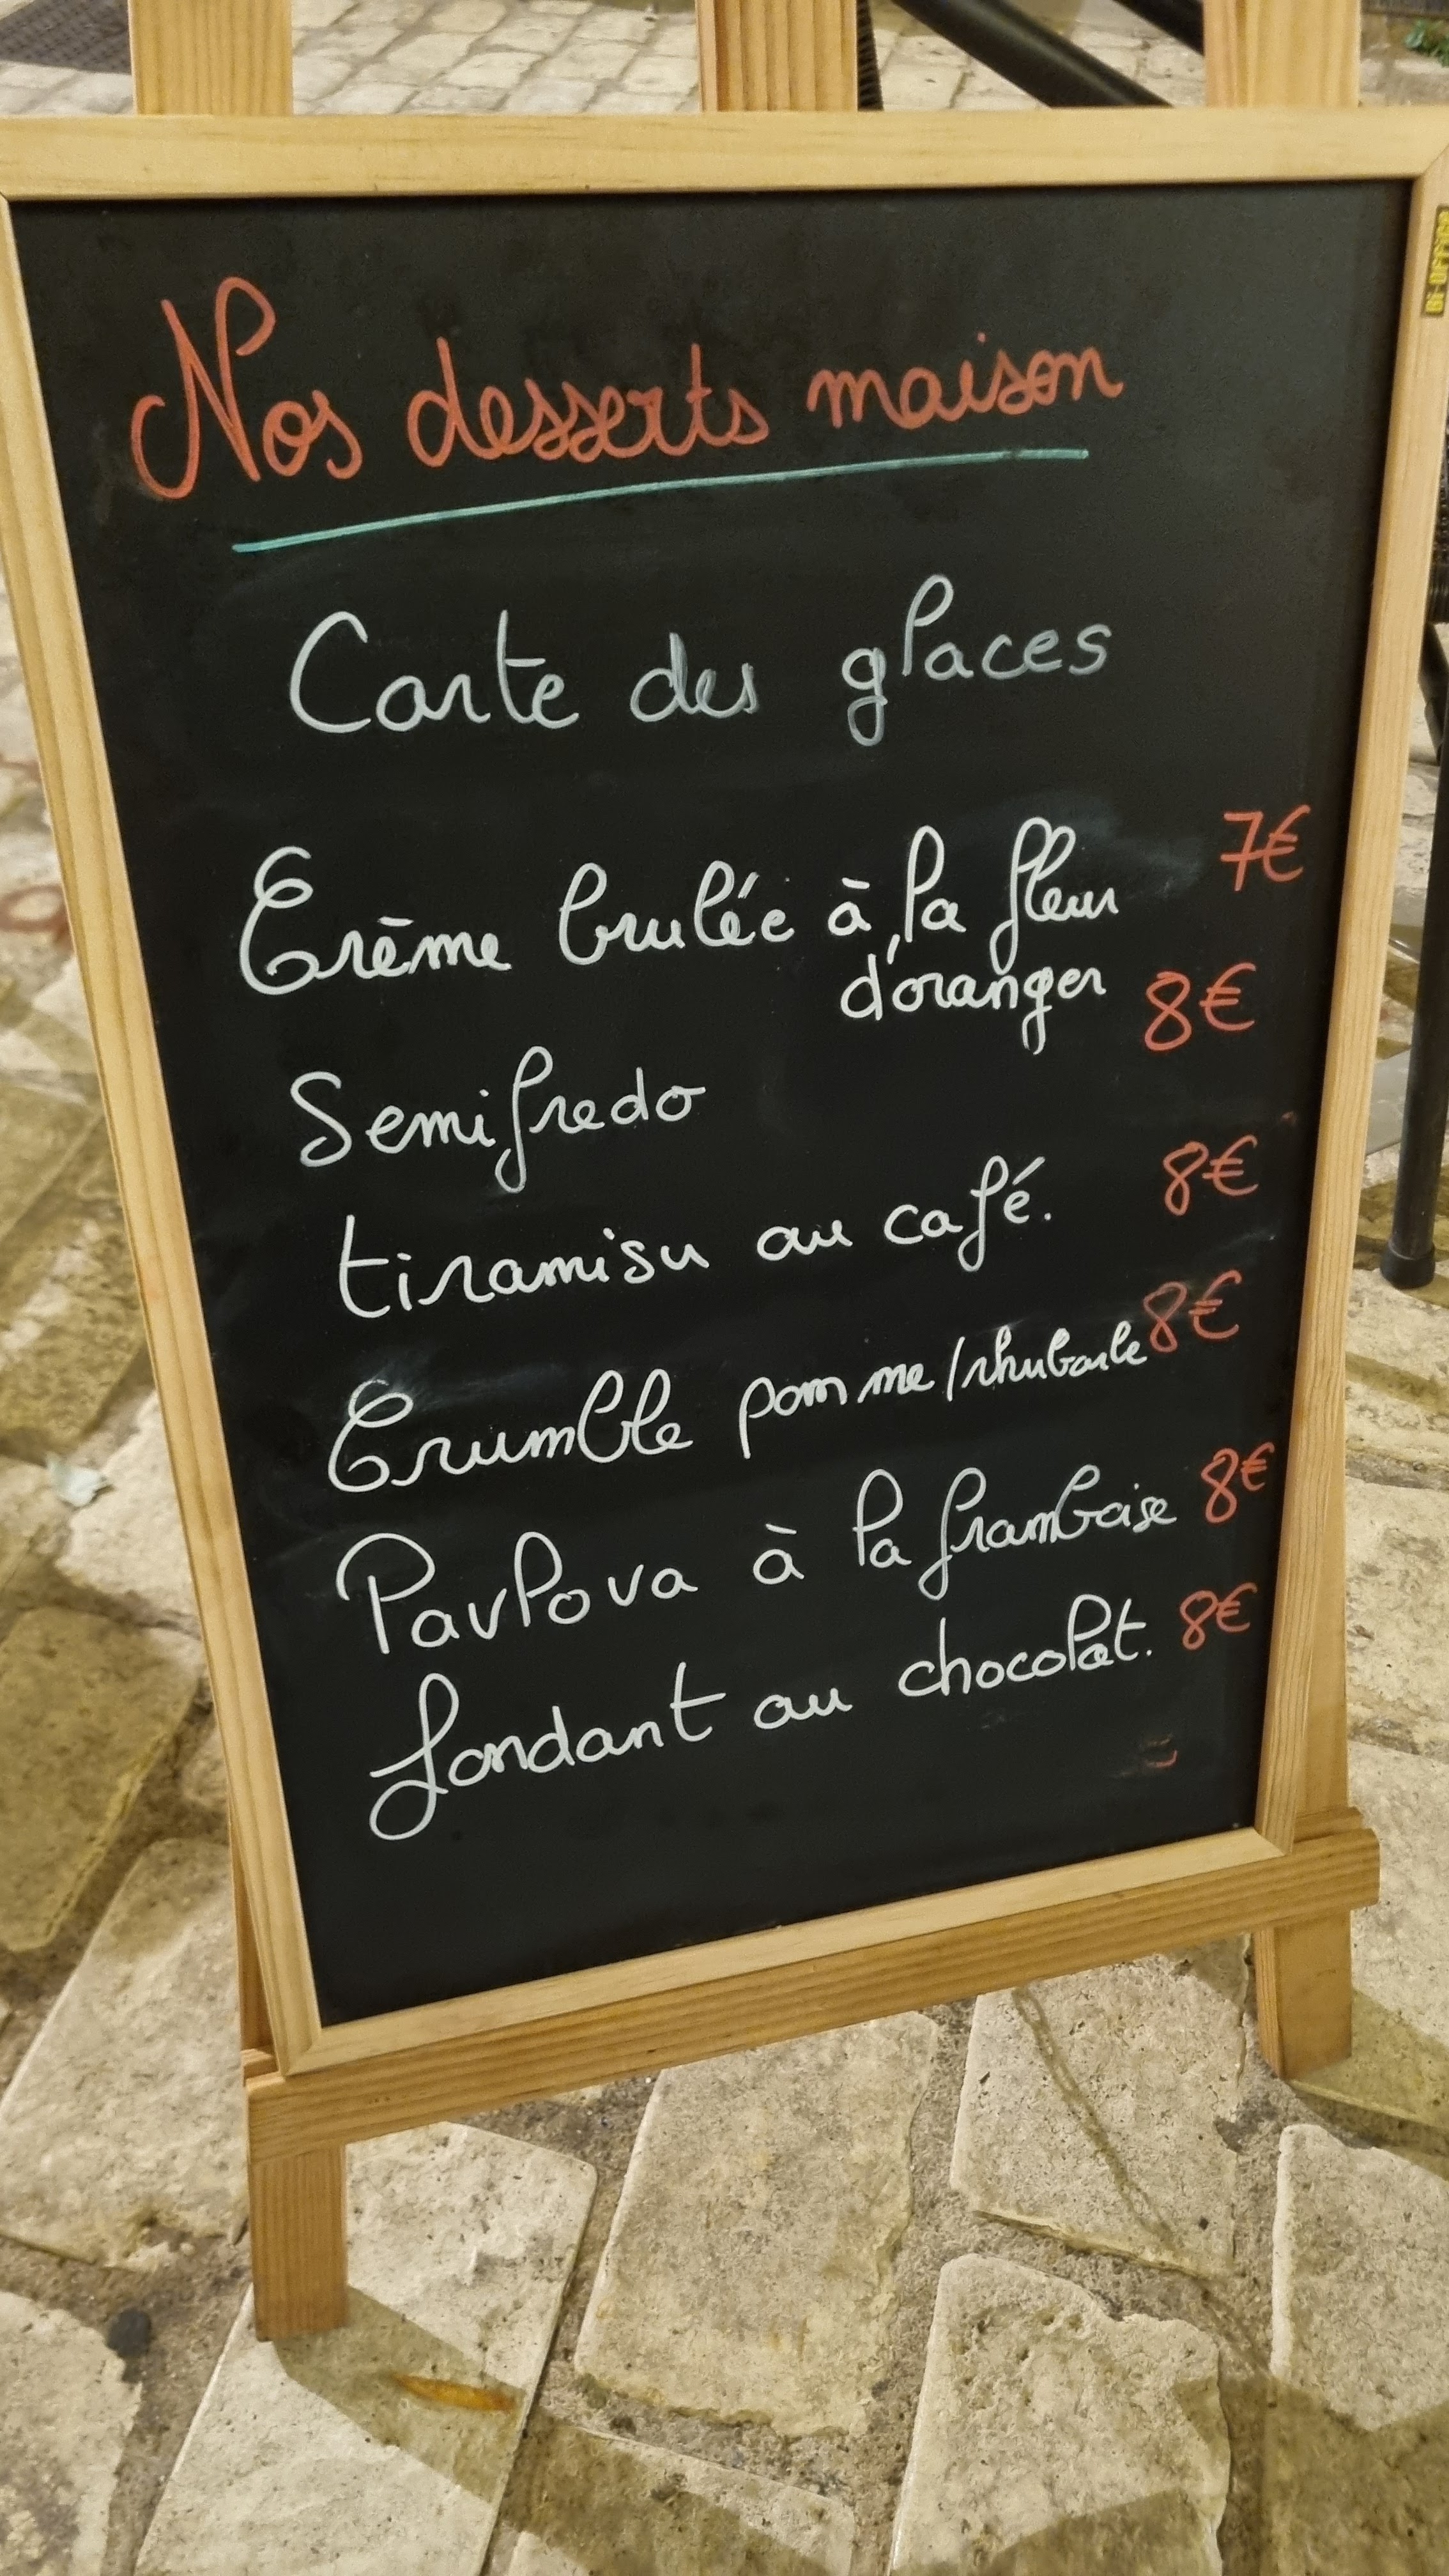 Bi-OFFICE
Nos desserts maison
Carte des glaces
Crème brulée à la fleur 7€
d'oranger
Semifredo 8€
tiramisu au café. 8€
Crumble pomme/rhubarbe 8€
Pavlova à la framboise 8€
fondant au chocolat. 8€